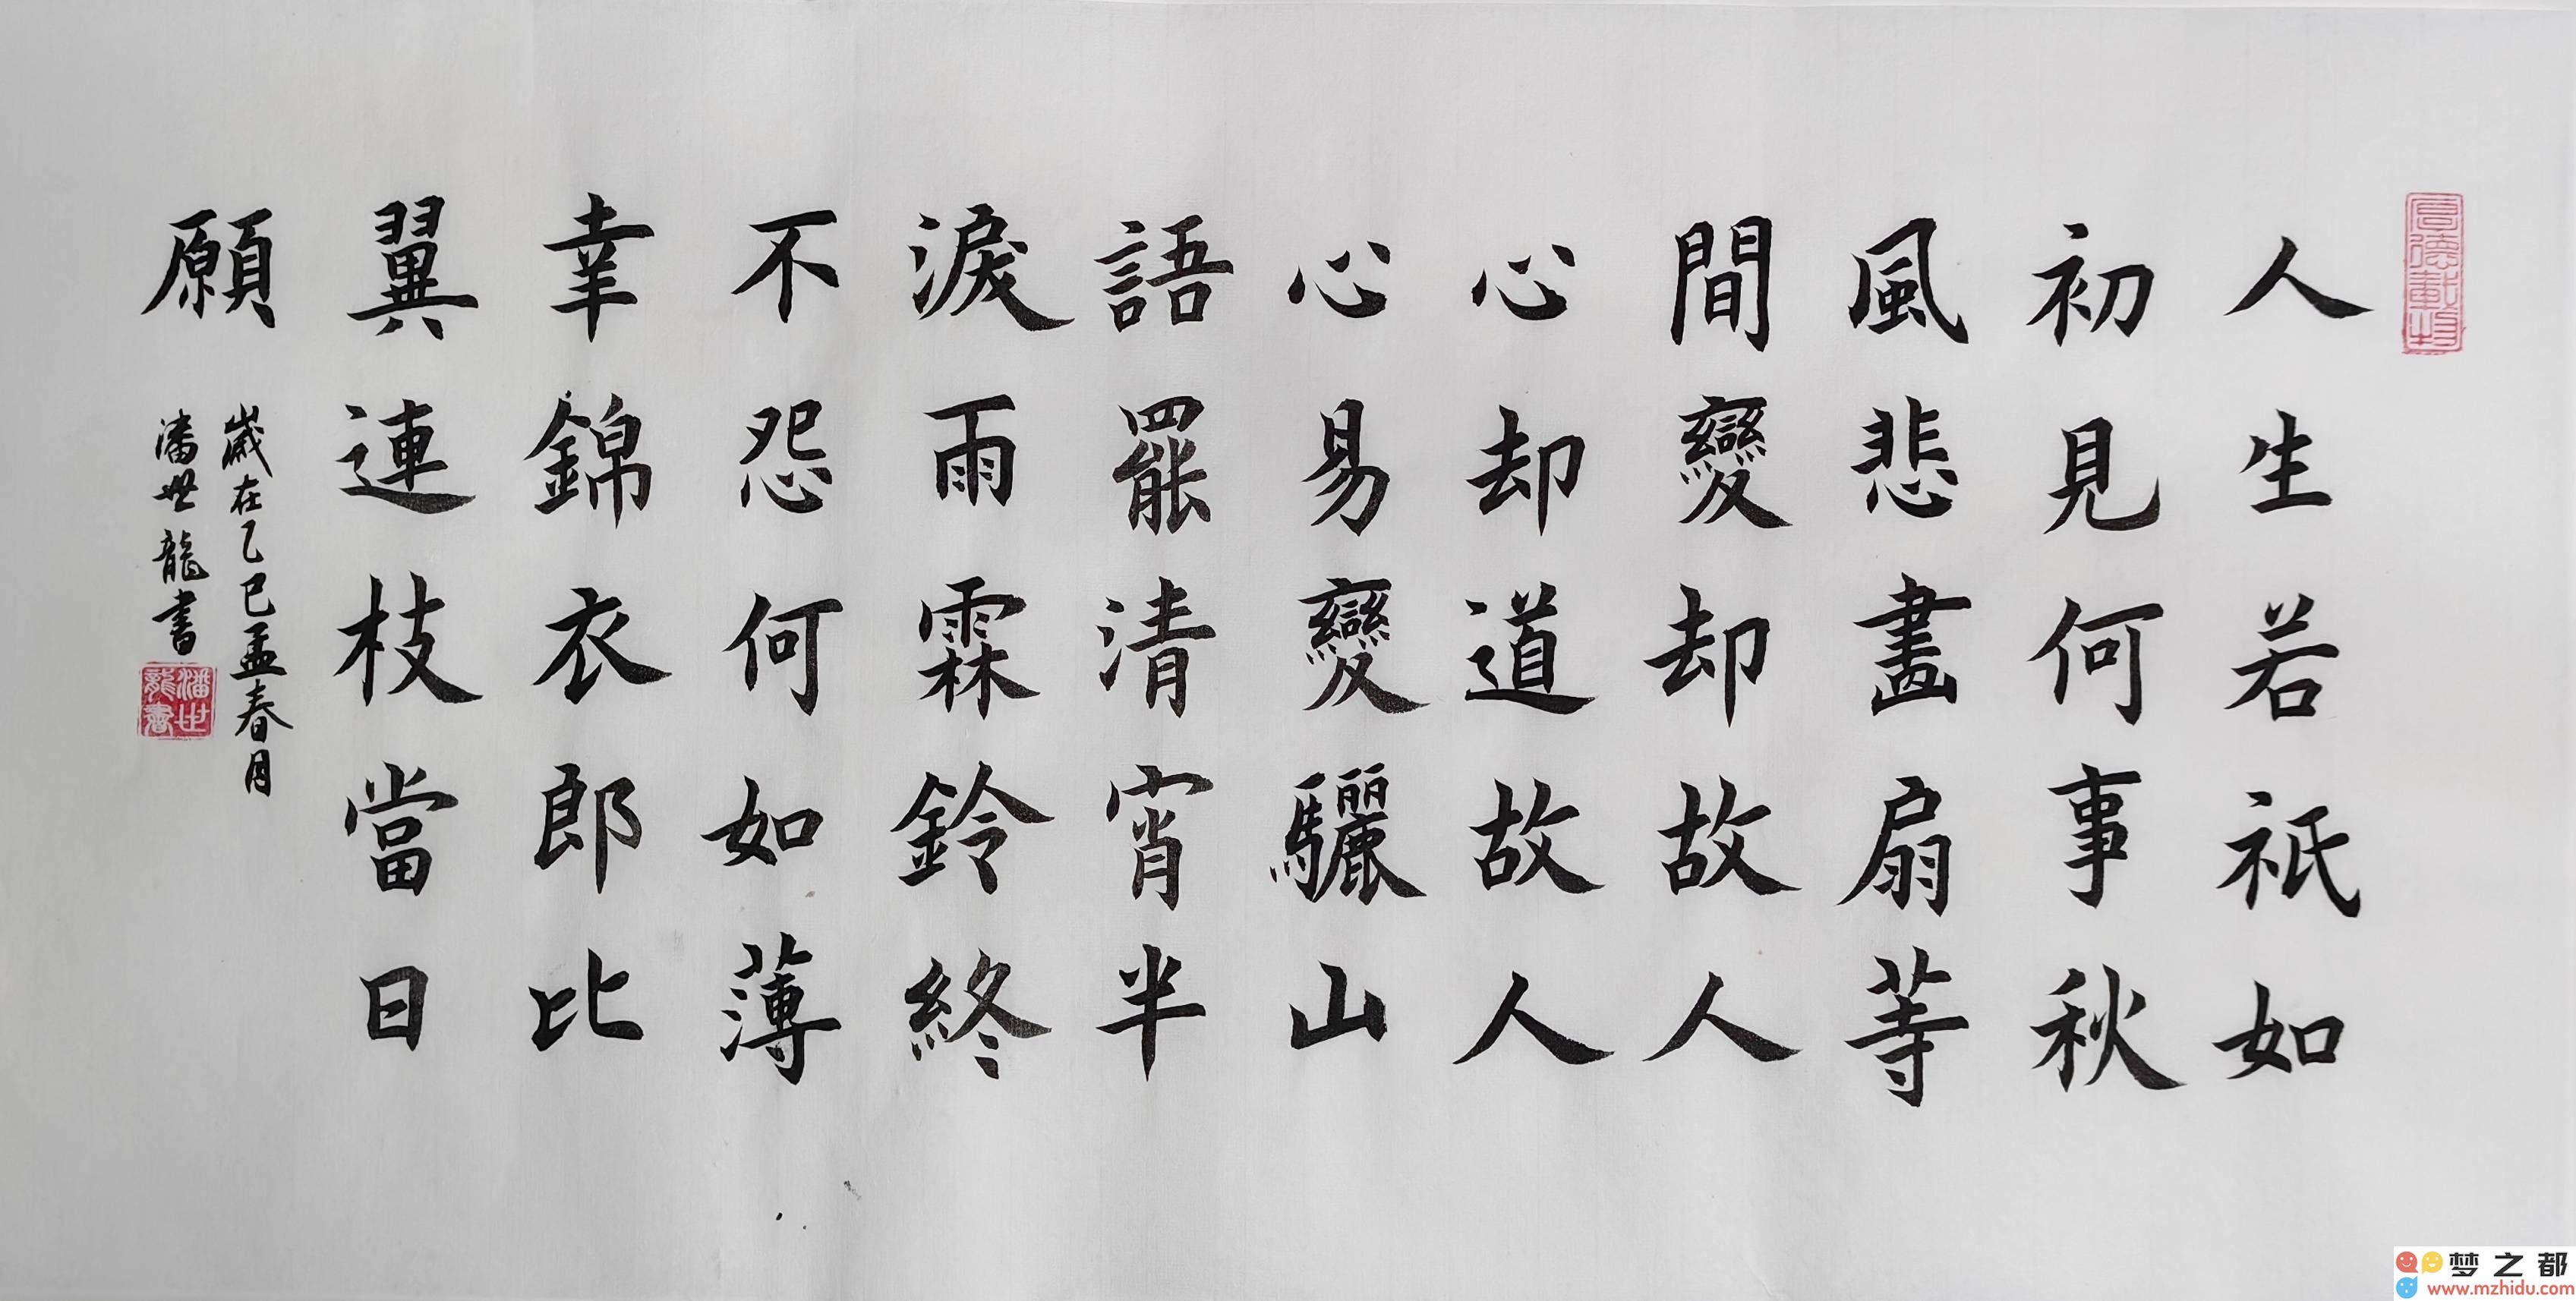 厚德載物
人生若祇如
初見何事秋
風悲畫扇等
間變却故人
心却道故人
心易變驪山
語罷清宵半
淚雨霖鈴終
不怨何如薄
幸錦衣郎比
翼連枝當日
願
歲在乙巳孟春月
潘世龍書
潘世龍書
梦之都
www.mzhidu.com